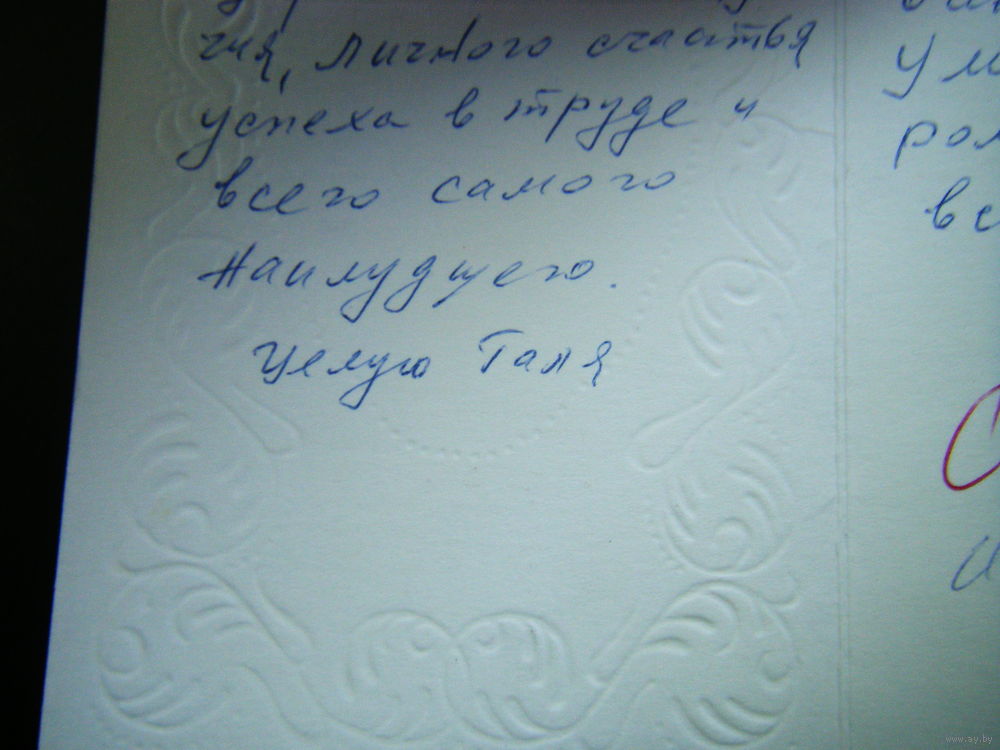 чия, личного счастья
успеха в труде и
всего самого
наилудшего.
Целую Галя
www.ay.by